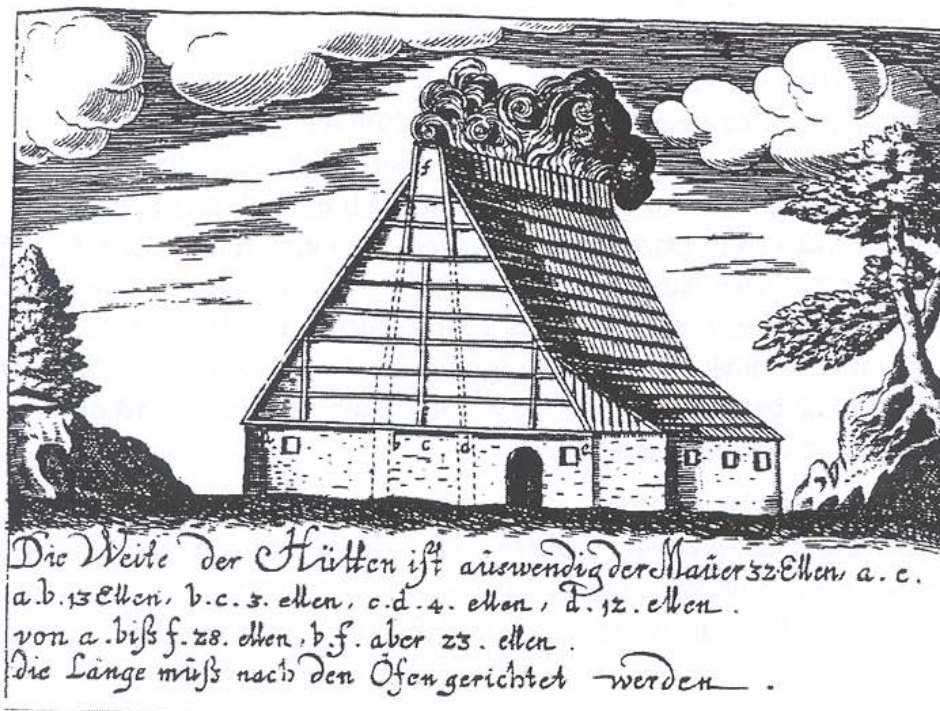 f
a b c d e
Die Weite der Hütten ist auswendig der Mauer 32 Ellen, a. e.
a. b. 13 Ellen, b. c. 3. ellen, c. d. 4. ellen, d. 12. ellen.
von a. biß f. 28. ellen, b. f. aber 23. ellen.
die Länge müß nach den Öfen gerichtet werden.